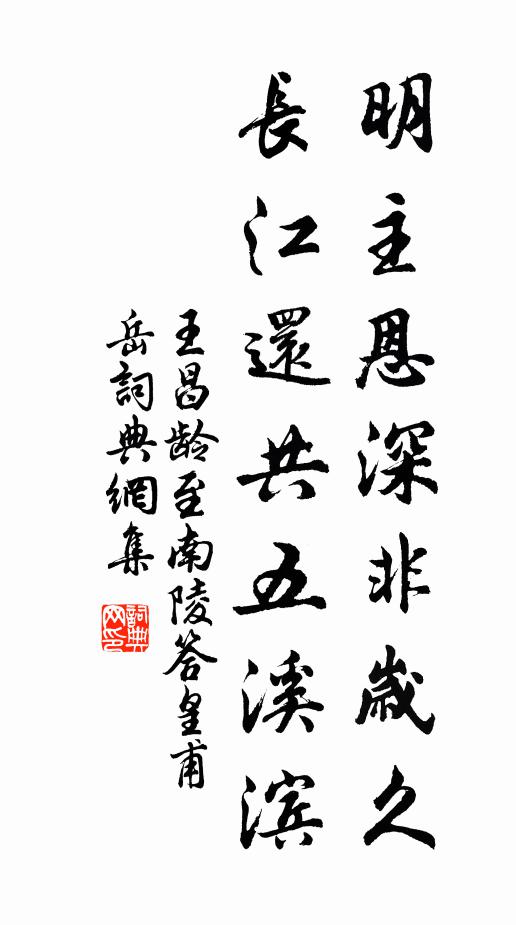 明主恩深非歲久
長江還共五溪滨
王昌龄至南陵答皇甫
岳詞典網集
詞典
网印